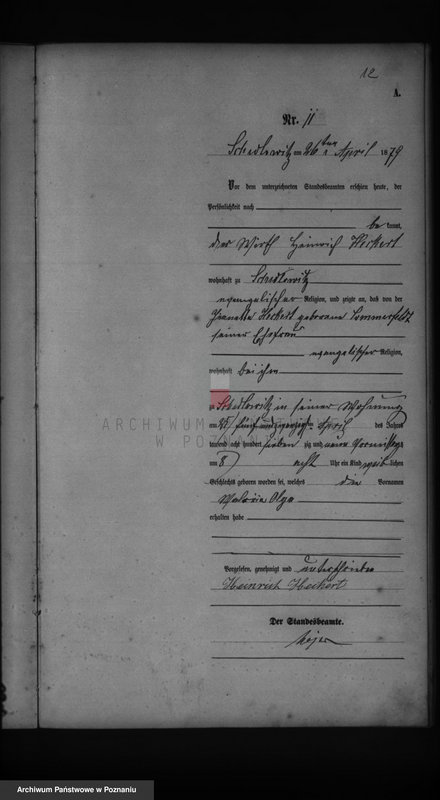 12
A.
Nr. 11
Schedlowitz am 26ten April 1879
Vor dem unterzeichneten Standesbeamten erschien heute, der
Persönlichkeit nach
be kannt,
der Wirth Heinrich Heckert
wohnhaft zu Schedlowitz
evangelischer Religion, und zeigte an, daß von der
Heckert geborene Sommerfeldt
seiner Ehefrau
evangelischer Religion,
wohnhaft bei ihm
zu Schedlowitz in seiner Wohnung
am April des Jahres
tausend acht hundert sieben zig und neun Vormittags
um 8 acht Uhr ein Kind weib lichen
Geschlechts geboren worden sei, welches den Vornamen
Olga
erhalten habe
Vorgelesen, genehmigt und unterschrieben
Heinrich Heckert
Der Standesbeamte.
ARCHIWUM
W PO
Archiwum Państwowe w Poznaniu